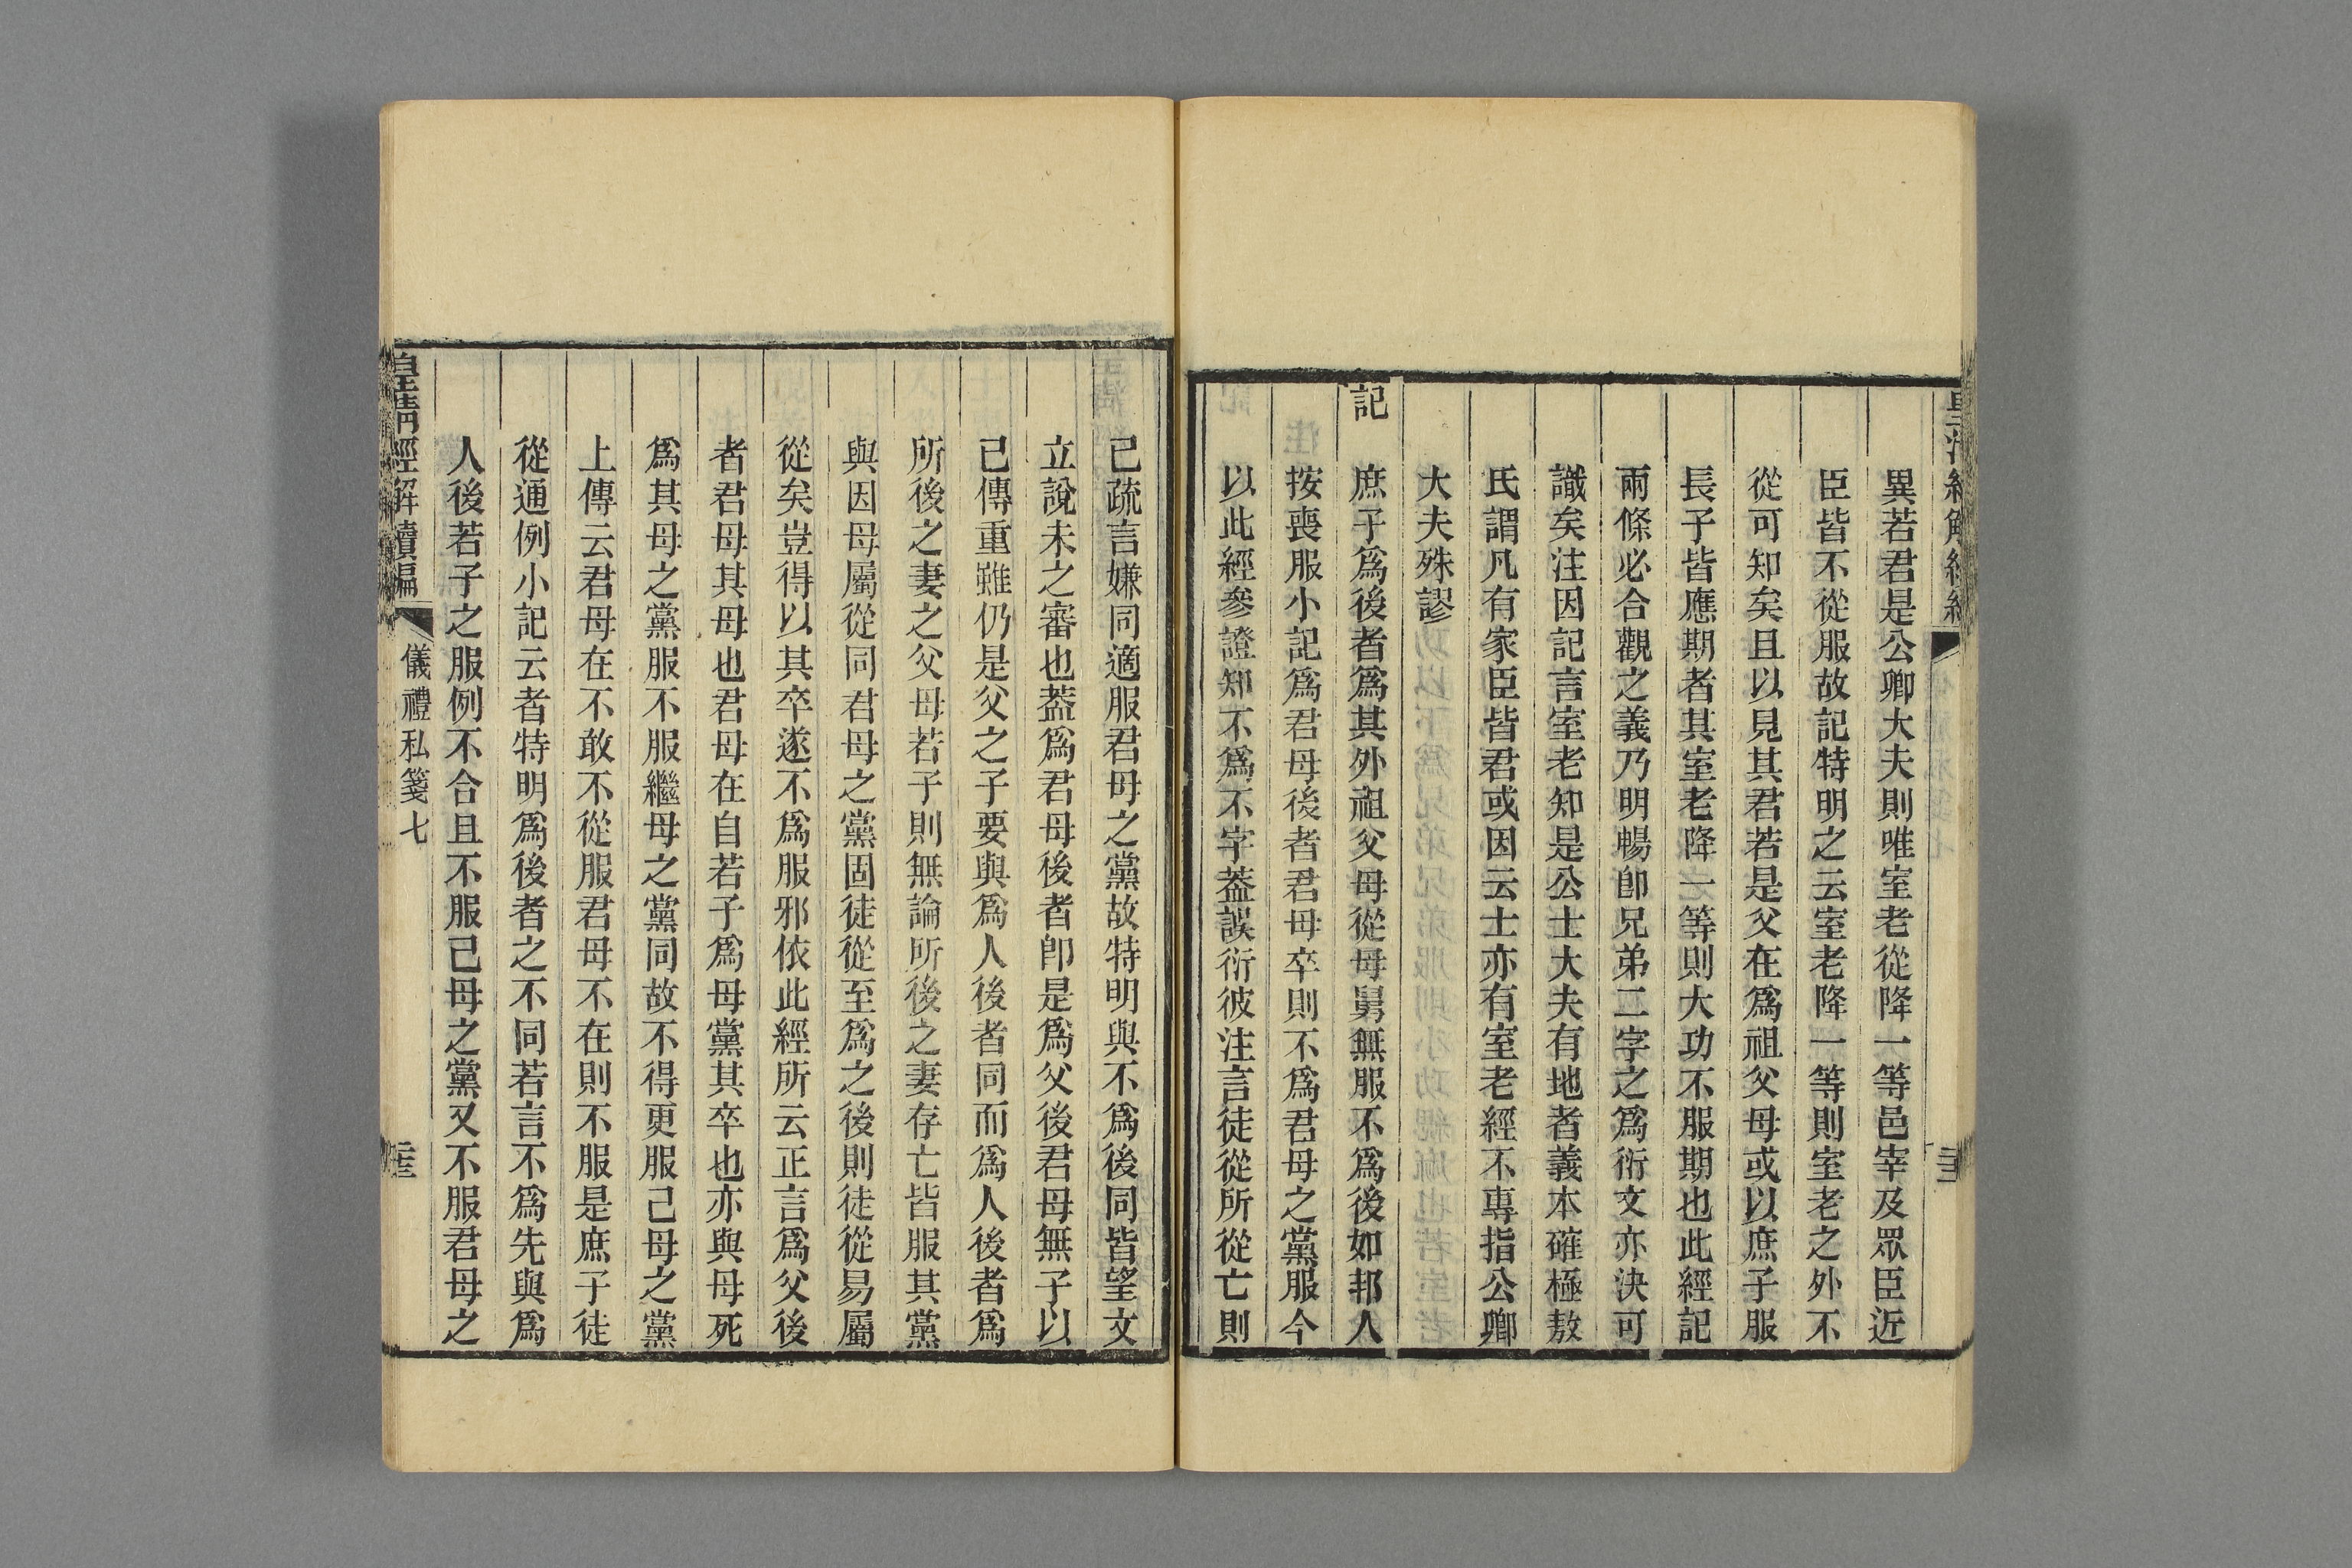 異若君是公卿大夫則唯室老從降一等邑宰及眾臣近
臣皆不從服故記特明之云室老降一等則室老之外不
從可知矣且以見其君若是父在爲祖父母或以庶子服
長子皆應期者其室老降一等則大功不服期也此經記
兩條必合觀之義乃明暢卽兄弟二字之爲衍文亦決可
識矣注因記言室老知是公士大夫有地者義本確極敖
氏謂凡有家臣皆君或因云士亦有室老經不專指公卿
大夫殊謬
記
庶子爲後者爲其外祖父母從母舅無服不爲後如邦人
按喪服小記爲君母後者君母卒則不爲君母之黨服今
以此經參證知不爲不字葢誤衍彼注言徒從所從亡則
已疏言嫌同適服君母之黨故特明與不爲後同皆望文
立說未之審也葢爲君母後者卽是爲父後君母無子以
已傳重雖仍是父之子要與爲人後者同而爲人後者爲
所後之妻之父母若子則無論所後之妻存亡皆服其黨
與因母屬從同君母之黨固徒從至爲之後則徒從易屬
從矣豈得以其卒遂不爲服邪依此經所云正言爲父後
者君母其母也君母在自若子爲母黨其卒也亦與母死
爲其母之黨服不服繼母之黨同故不得更服己母之黨
上傳云君母在不敢不從服君母不在則不服是庶子徒
從通例小記云者特明爲後者之不同若言不爲先與爲
人後若子之服例不合且不服己母之黨又不服君母之
皇淸經解續編
儀禮私箋七